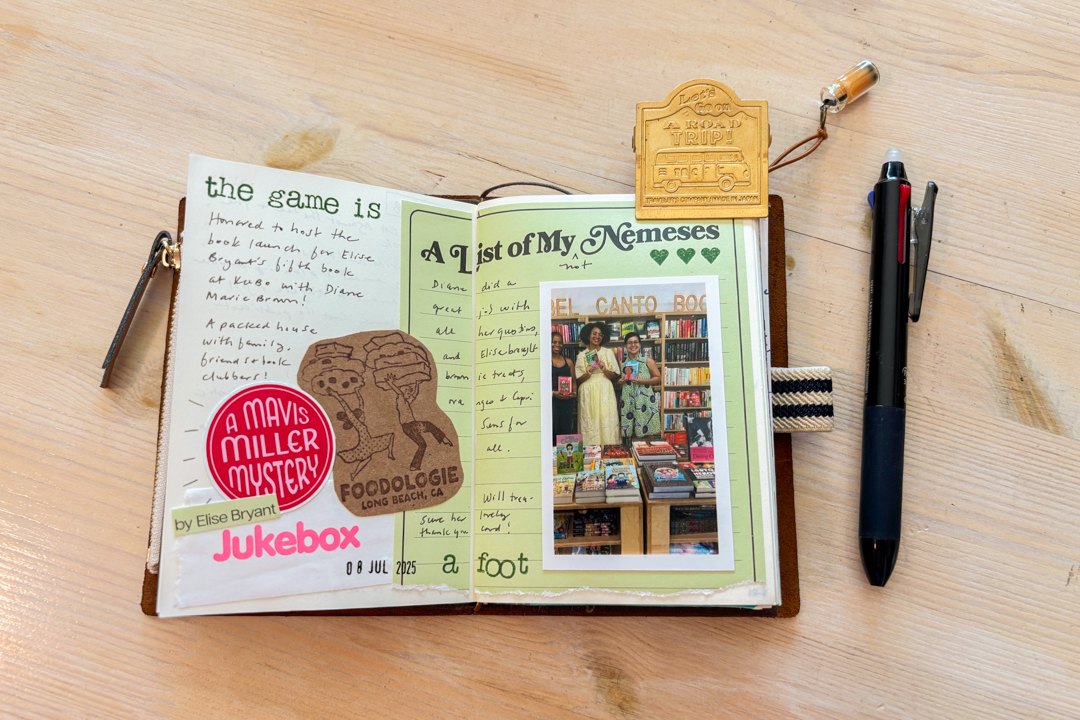 the game is
Honored to host the
book launch for Elise
Bryant's fifth book
at KUBO with Diane
Marie Brown!
A packed house
with family,
friends & book
clubbers!
A MAVIS
MILLER
MYSTERY
by Elise Bryant
Jukebox
08 JUL 2025
FOODOLOGIE
LONG BEACH, CA
A List of My Nemeses
not
Diane did a
great job with
all her questions,
and Elise brought
brownie treats,
oranges & Capri
Suns for
all.
Will trea-
sure her lovely
thank you card!
a foot
BEL CANTO BOO
Let's
Go on
A ROAD
TRIP!
TRAVELER'S COMPANY MADE IN JAPAN